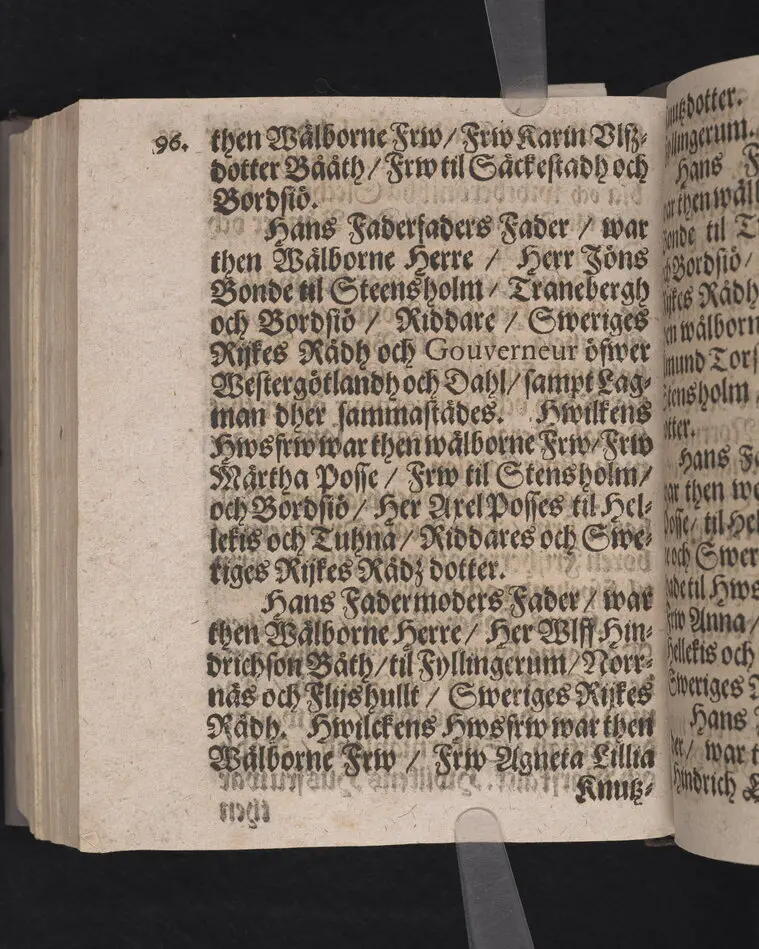 96. then Wälborne Frw/ Frw Karin Vlfß-
dotter Bååth/ Frw til Säckestadh och
Bordsiö.
Hans Faderfaders Fader / war
then Wälborne Herre / Herr Jöns
Bonde til Steensholm/ Tranebergh
och Bordsiö / Riddare / Sweriges
Rijkes Rådh och Gouverneur öfwer
Westergötlandh och Dahl/ sampt Lag-
man dher sammastädes. Hwilkens
Hwsfrw war then wälborne Frw/ Frw
Märtha Posse / Frw til Stensholm/
och Bordsiö / Her Axel Posses til Hel-
lekis och Tuhna / Riddares och Swe-
riges Rijkes Rådz dotter.
Hans Fadermoders Fader / war
then Wälborne Herre/ Her Wlff Hin-
drichson Båth/ til Fyllingerum/ Norr-
näs och Flijshullt / Sweriges Rijkes
Rådh. Hwilckens Hwsfrw war then
Wälborne Frw / Frw Agneta Lillia
Knutz-
utzdotter.
Hans F
tter.
Hans F
Frw Anna /
Hellekis och
Sweriges
Hans
der/ war t
Hindrich